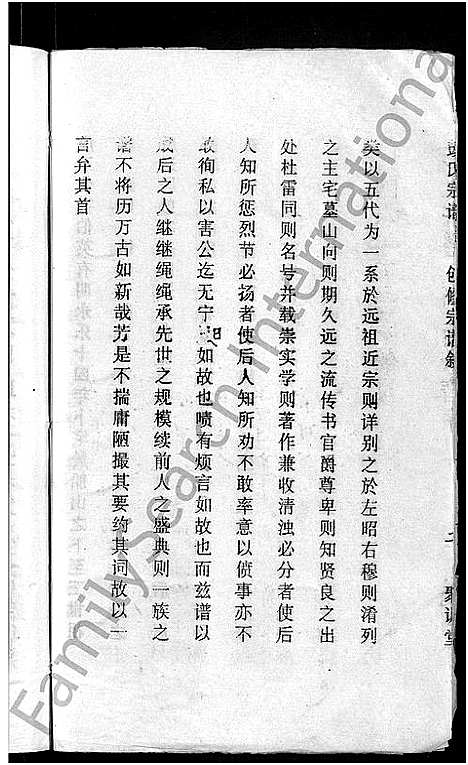 类以五代为一系於远祖近宗则详别之於左昭右穆则淆列
之主宅墓山向则期久远之流传书官爵尊卑则知贤良之出
处杜雷同则名号并载崇实学则著作兼收清浊必分者使后
人知所惩烈节必扬者使后人知所劝不敢率意以偾事亦不
敢徇私以害公迄无宁如故也啧有烦言如故也而兹谱以
成后之人继继绳绳承先世之规模续前人之盛典则一族之
谱不将历万古如新哉芳是不揣庸陋撮其要约其词故以一
言弁其首
FamilySearch International